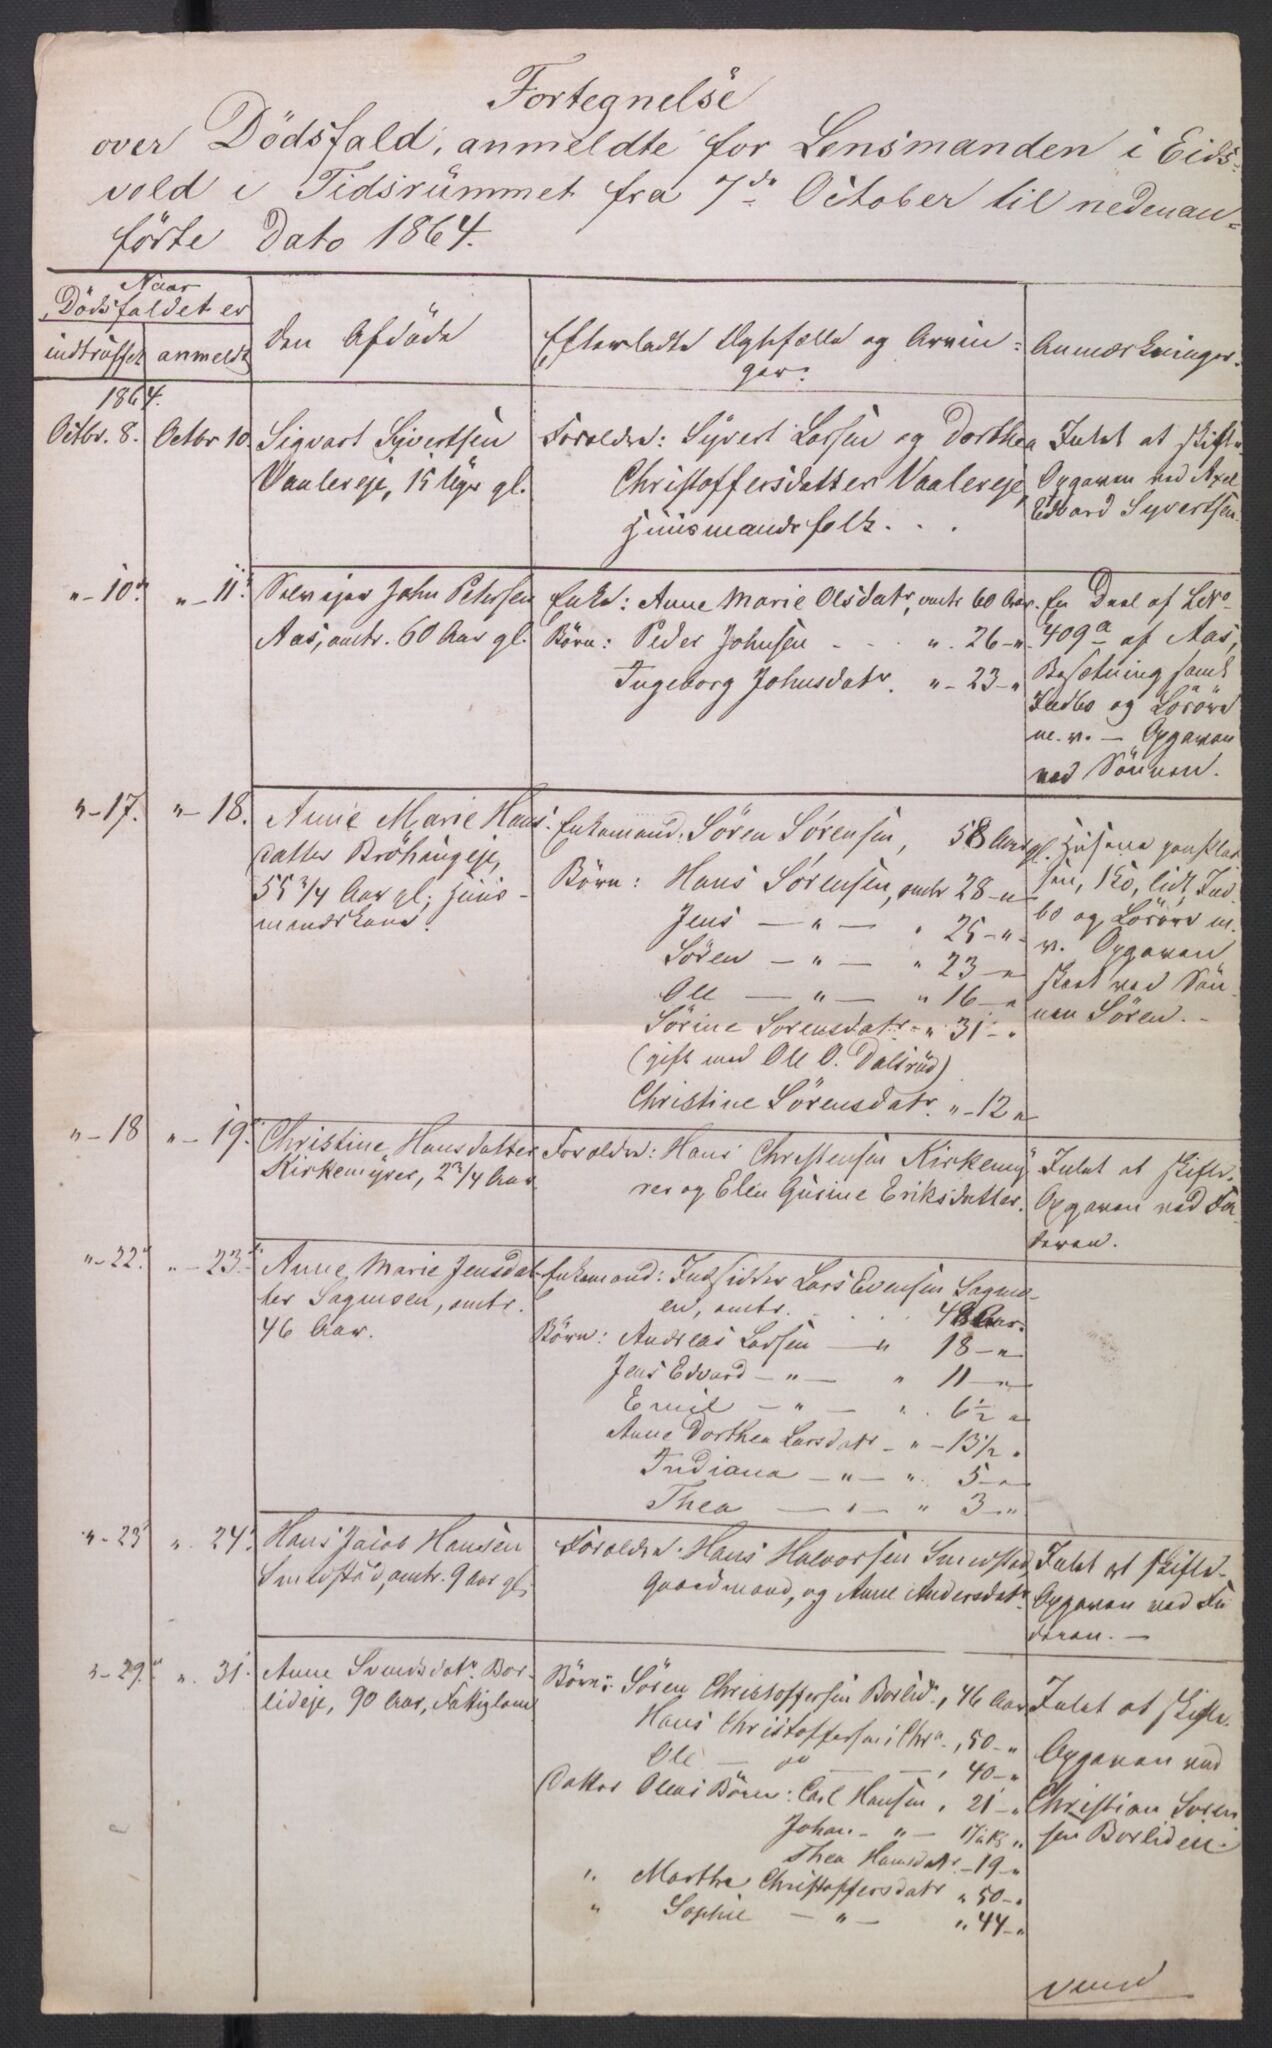 Fortegnelse
over Dödsfald, anmeldte for Lensmanden i Eids-
vold i Tidsrummet fra 7de October til nedenan-
förte Dato 1864.
Naar
Dödsfaldet er
indtruffet
anmeldt
den Afdöde
Efterladte Ægtefælle og Arvin-
ger.
Anmærkninger.
1864.
Octbr. 8.
Octbr 10.
Sigvart Syvertsen
Vaalereje, 15 Uger gl.
Forældre: Syvert Larsen og Dorthea
Christoffersdatter Vaalereje,
Huusmandsfolk.
Intet at skifte
Opgaven ved Axel
Edvard Syvertsen.
"-10de
"-11t
Selveier John Petersen
Aas, omtr. 60 Aar gl.
Enke: Anne Marie Olsdatr, omtr 60 Aar.
Börn: Peder Johnsen . . . " 26-"
Ingeborg Johnsdatr. "- 23-"
En Deel af LNo
409a af Aas,
Besætning samt
Indbo og Lösöre
m. v. - Opgaven
ved Sönnen.
"-17.
"-18.
Anne Marie Hans-
datter Bröhaugeje,
55 3/4 Aar gl; Huus-
mandskone.
Enkemand: Sören Sörensen, 58 Aar gl.
Börn: Hans Sörensen, omtr 28-"
Jens -"- " 25-"
Sören -"- " 23-"
Ole -"- " 16-"
Sörine Sorensdatr. " 31-"
(gift med Ole O. Dalsrud)
Christine Sörensdatr. "-12 "
Husene paa Plad-
sen, 1 Ko, lidt Ind-
bo og Lösöre m.
v. Opgaven
skeet ved Sön-
nen Sören. -
"-18
"-19.
Christine Hansdatter
Kirkemyrer, 2 3/4 Aar
Forældre: Hans Christensen Kirkemy-
rer og Elen Gusine Eriksdatter.
Intet at skifte.
Opgaven ved Fa-
deren.
"-22.
"-23.
Anne Marie Jensdat-
ter Sagmoen, omtr.
46 Aar.
Enkemand: Indsidder Lars Evensen Sagmo-
en, omtr. . . . 48 Aar.
Börn: Andreas Larsen -" 18-"
Jens Edvard -"- " 11-"
Emil -"- " 6 1/2 "
Anne Dorthea Larsdatr -"-13 1/2 "
Indiana -"- " 5-"
Thea -"- " 3-"
"-23
" 24
Hans Jacob Hansen
Smedstad, omtr. 9 Aar gl.
Forældre: Hans Halvorsen Smedstad,
Gaardmand, og Anne Andersdatr.
Intet at skifte.
Opgaven ved Fa
deren. -
"-29.
" 31.
Anne Svendsdatr. Bor-
lideje, 90 Aar, Fattiglem
Börn: Sören Christoffersen Borlid., 46 Aar
Hans Christoffersen i Chra., 50-"
Ole - " - , 40-"
Datter Oleas Börn: Carl Hansen, 21-"
Johan -"-
Thea Hansdatr. -19-"
" Marthe Christoffersdatr " 50-"
" Sophie -"- " 44-"
Intet at skifte.
Opgaven ved
Christian Soren
sen Borlideie.
vend